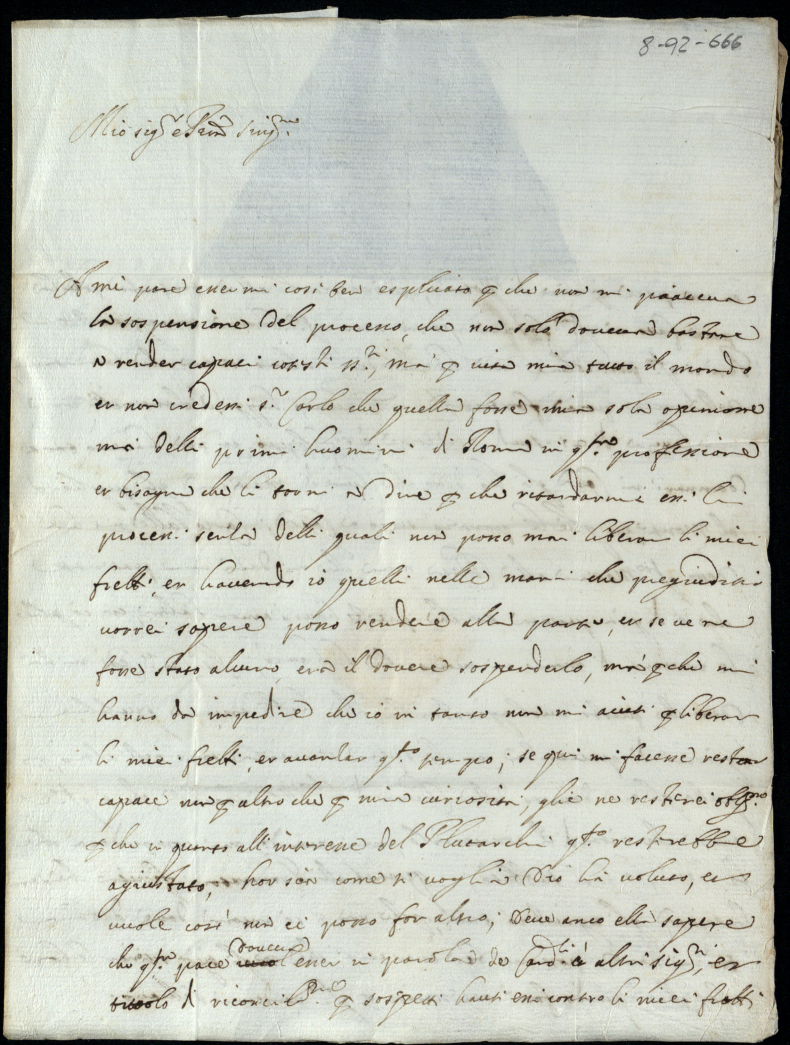 8-92-666
Mio sig.re e Pron sing.mo
A me pare essermi così ben esplicato p che non mi piaceva
la sospensione del processo, che non solo doveva bastare
a render capaci cotesti ss.ri, ma p vita mia tutto il mondo
et non credessi s.r Carlo che quella fosse mia sola opinione
ma delli primi huomini di Roma in q.sta professione
et bisogna che li torni a dire p che ritardarmi essi li
processi senza delli quali non posso mai liberar li miei
frelli, et havendo io quelli nelle mani che pregiuditii
vorrei sapere posso rendere alla parte, et se ve ne
fosse stato alcuno, era il dovere sospenderlo, ma p che mi
hanno da impedire che io in tanto non mi aiuti p liberar
li miei frelli, et avantar q.to tempo; se qui mi facesse restar
capace non p altro che p mia curiosità, glie ne resterei obg.mo
p che in quanto all'interesse del Plutarchi q.to restarebbe
agiustato, hor sia come si voglia Dio hà voluto, et
vuole così non ci posso far altro; Deve anco ella sapere
che q.sta pace doveva esser in parola de Card.li è altri sig.ri, et
titolo di riconcil.ne p sospetti hauti essi contro li miei frelli